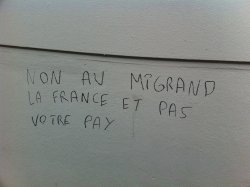 NON AU MIGRAND
LA FRANCE ET PAS
VOTRE PAY